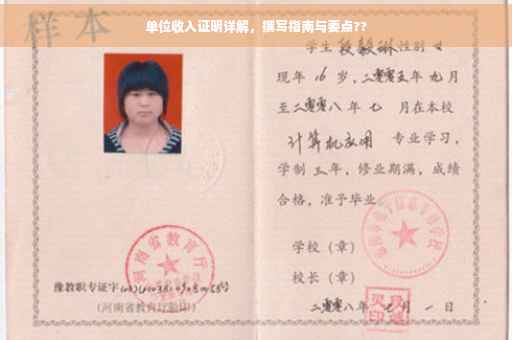 单位收入证明详解，撰写指南与要点??
样本
学生段毅琳性别女
现年16岁，二零零五年九月
至二零零八年七月在本校
计算机应用专业学习，
学制三年，修业期满，成绩
合格，准予毕业
学校（章）
校长（章）
二零零八年七月一日
河南省教育厅
豫教职专证字
（河南省教育厅验印）